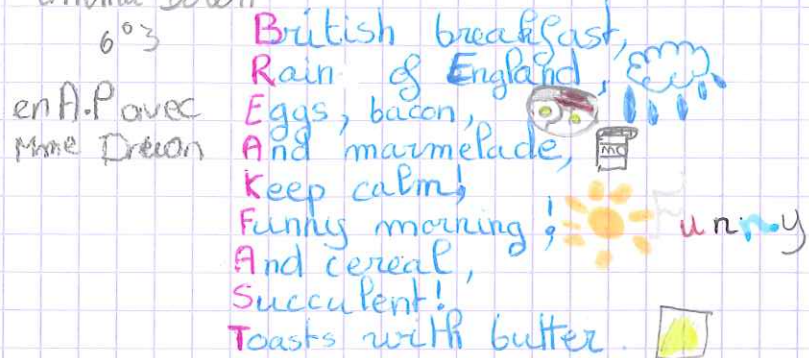 6°3
en A.P avec
Mme
British breakfast,
Rain of England,
Eggs, bacon,
And marmelade,
Keep calm!
Funny morning!
unny
And cereal,
Succulent!
Toasts with butter.